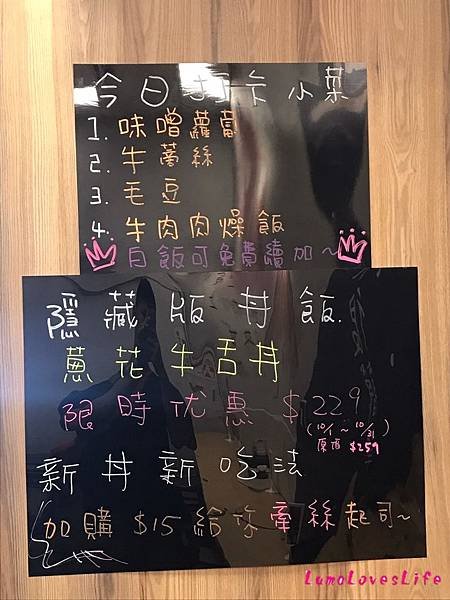 今日打卡小菜
1. 味噌蘿蔔
2. 牛蒡絲
3. 毛豆
4. 牛肉肉燥飯
白飯可免費續加~
隱藏版丼飯.
蔥花牛舌丼
限時优惠 $229
(10/1 ~ 10/31)
原價 $259
新丼新吃法
加購 $15 給你牽絲起司~
LumoLovesLife